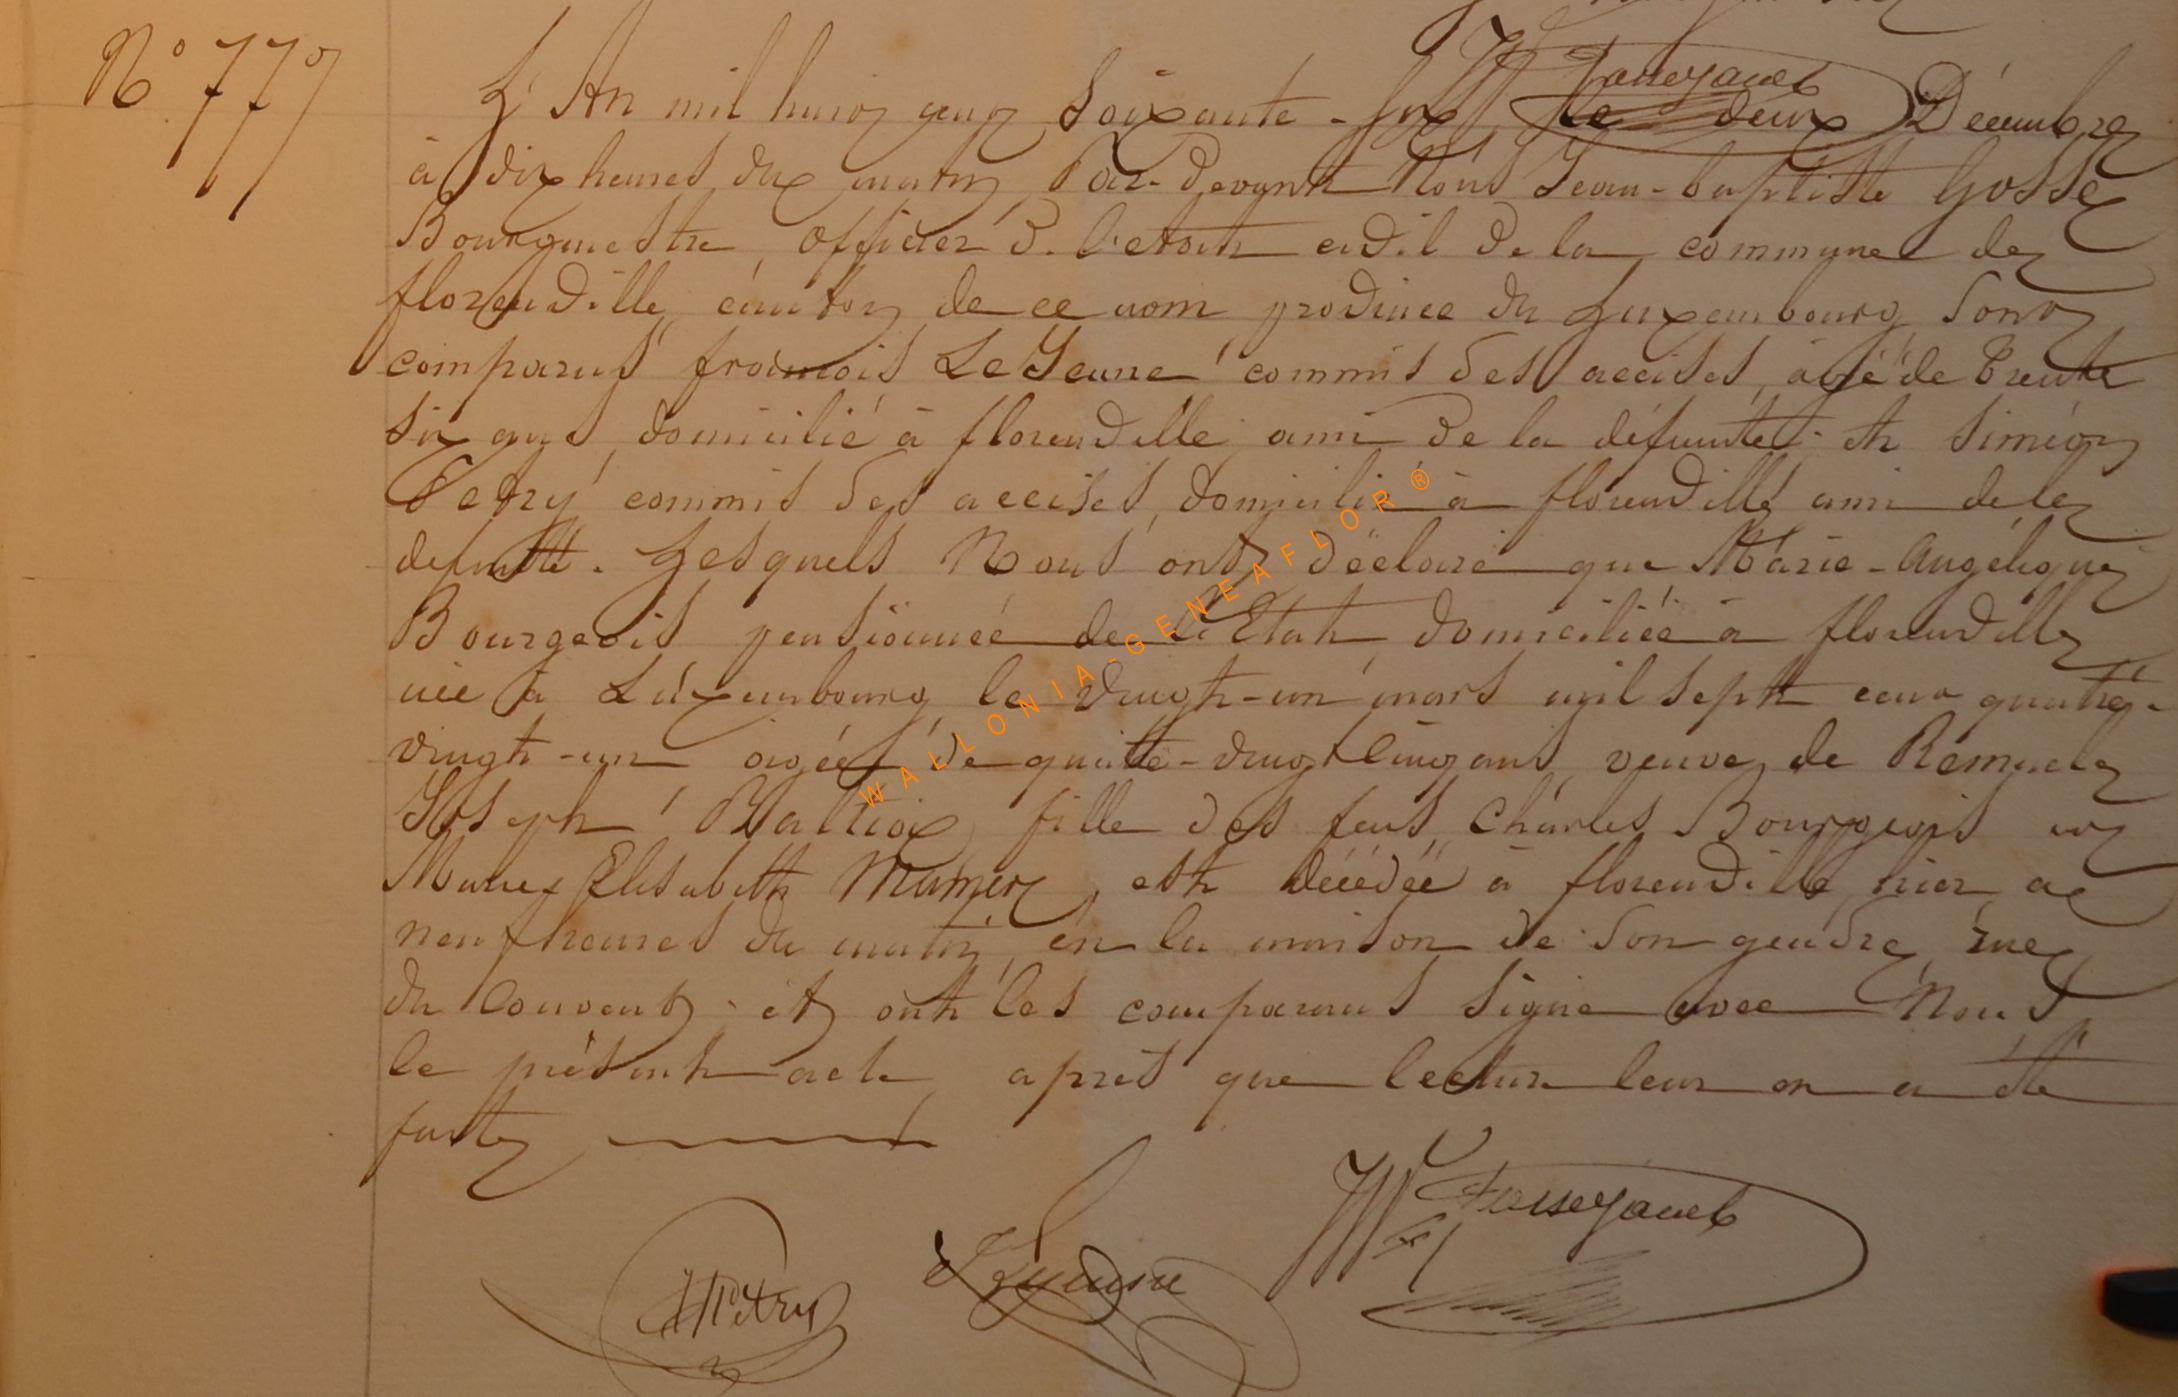 N° 77
L'An mil huit cent Soixante-Six le deux Décembre
à dix heures du matin, Par-devant Nous Jean-baptiste Gosse
Bourgmestre, officier d. l'etat civil de la commune de
florenville, canton de ce nom province du Luxembourg, Sont
comparus françois LeJeune commis des accises, âgé de trente
six ans, domicilié à florenville ami de la défunte et Siméon
Petry commis des accises, domicilié à florenville ami de la
defunte. Lesquels Nous ont déclaré que Marie-Angélique
Bourgeois pensionnée de l'Etat domiciliée à florenville
née à Luxembourg, le vingt-un mars mil sept cent quatre-
vingt-un âgée de quatre-vingt cinq ans, veuve de Remacle
Joseph Baltiox fille des feus Charles Bourgeois et
Marie Elisabeth Mamer, est décédée à florenville, hier à
neuf heures du matin, en la maison de son gendre, rue
du Couvent; et ont les comparans signé avec Nous
le présent acte, après que lecture leur en a été
faite
Petry
LeJeune
WALLONIA-GENEAFLOR ®